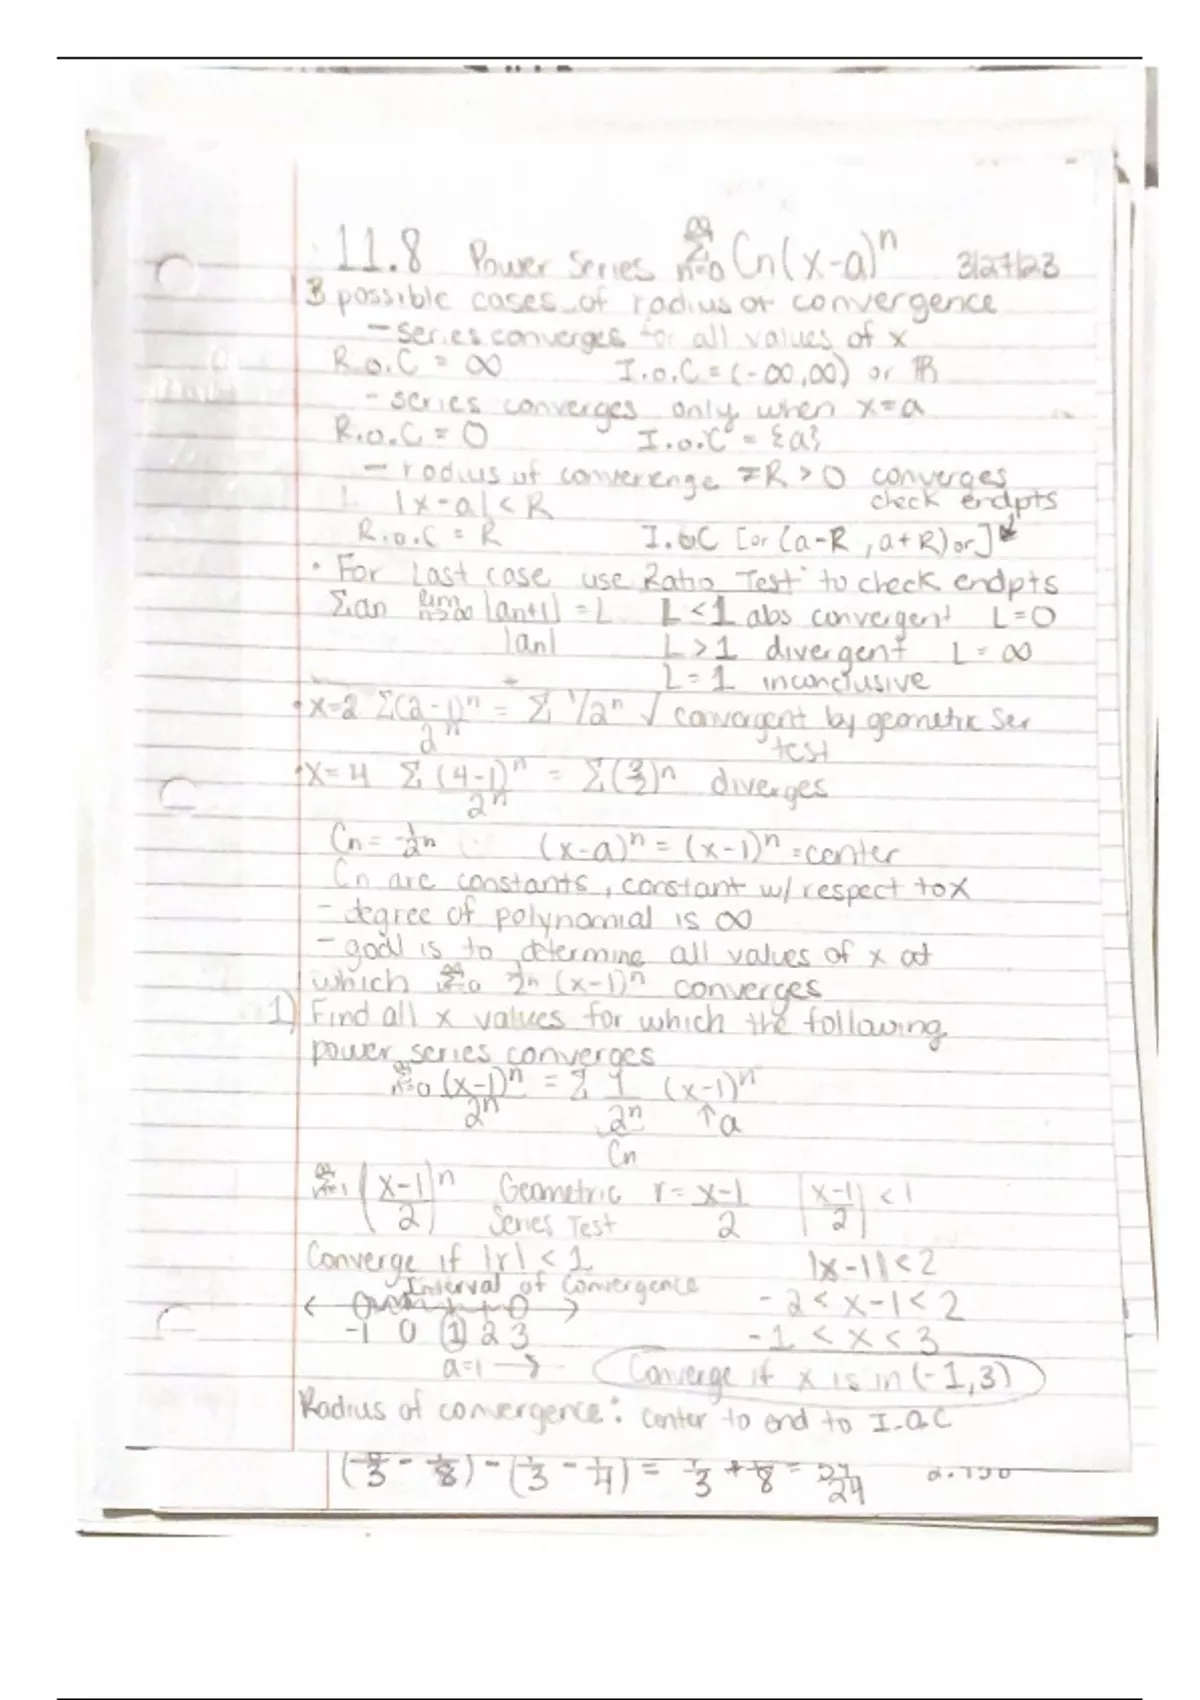 11.8 Power Series ∞Σn=0 Cn(x-a)^n 3/27/23
3 possible cases of radius of convergence
- series converges for all values of x
R.o.C = ∞ I.o.C = (-∞,∞) or ℝ
- series converges only when x=a
R.o.C = 0 I.o.C = {a}
- radius of converienge = R > 0 converges
|x-a| < R check endpts
R.o.C = R I.o.C [or (a-R, a+R) or ]
• For Last case use Ratio Test to check endpts
Σan lim n→∞ |an+1| / |an| = L L<1 abs convergent L=0
L>1 divergent L=∞
L=1 inconclusive
• x=2 Σ(2-1)^n / 2^n = Σ 1/2^n √ convergent by geometric ser
test
• x=4 Σ (4-1)^n / 2^n = Σ(3/2)^n diverges
Cn = 1/2^n (x-a)^n = (x-1)^n = center
Cn are constants, constant w/ respect to x
- degree of polynomial is ∞
- goal is to determine all values of x at
which ∞Σn=0 1/2^n (x-1)^n converges
1) Find all x values for which the following
power series converges
∞Σn=0 (x-1)^n / 2^n = Σ 1/2^n (x-1)^n
↑a
Cn
∞Σn=1 (x-1 / 2)^n Geometric r = x-1 / 2 |x-1 / 2| < 1
Series Test
Converge if |r| < 1 |x-1| < 2
Interval of Convergence -2 < x-1 < 2
-1 0 1 2 3 -1 < x < 3
a=1 → Converge if x is in (-1,3)
Radius of convergence: center to end to I.O.C